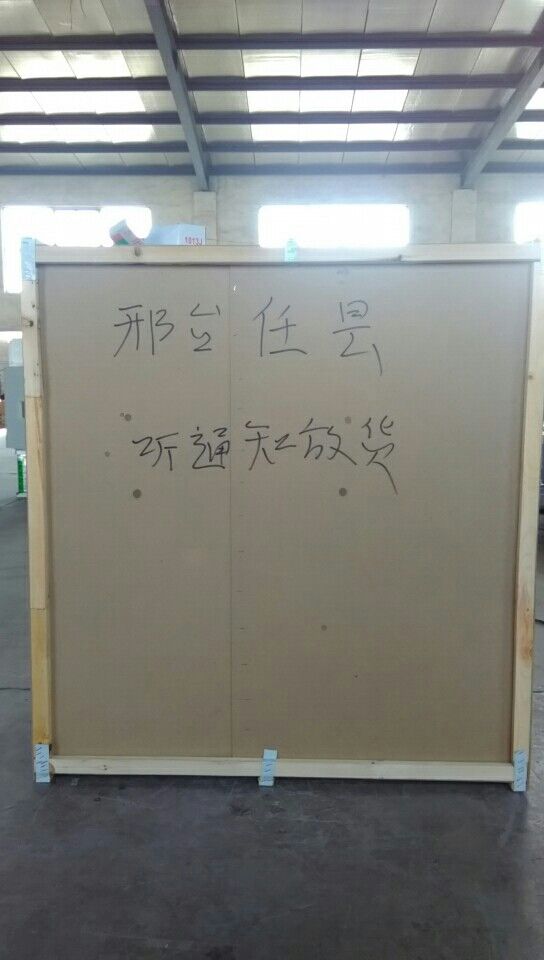 1013J
邢台任县
听通知放货